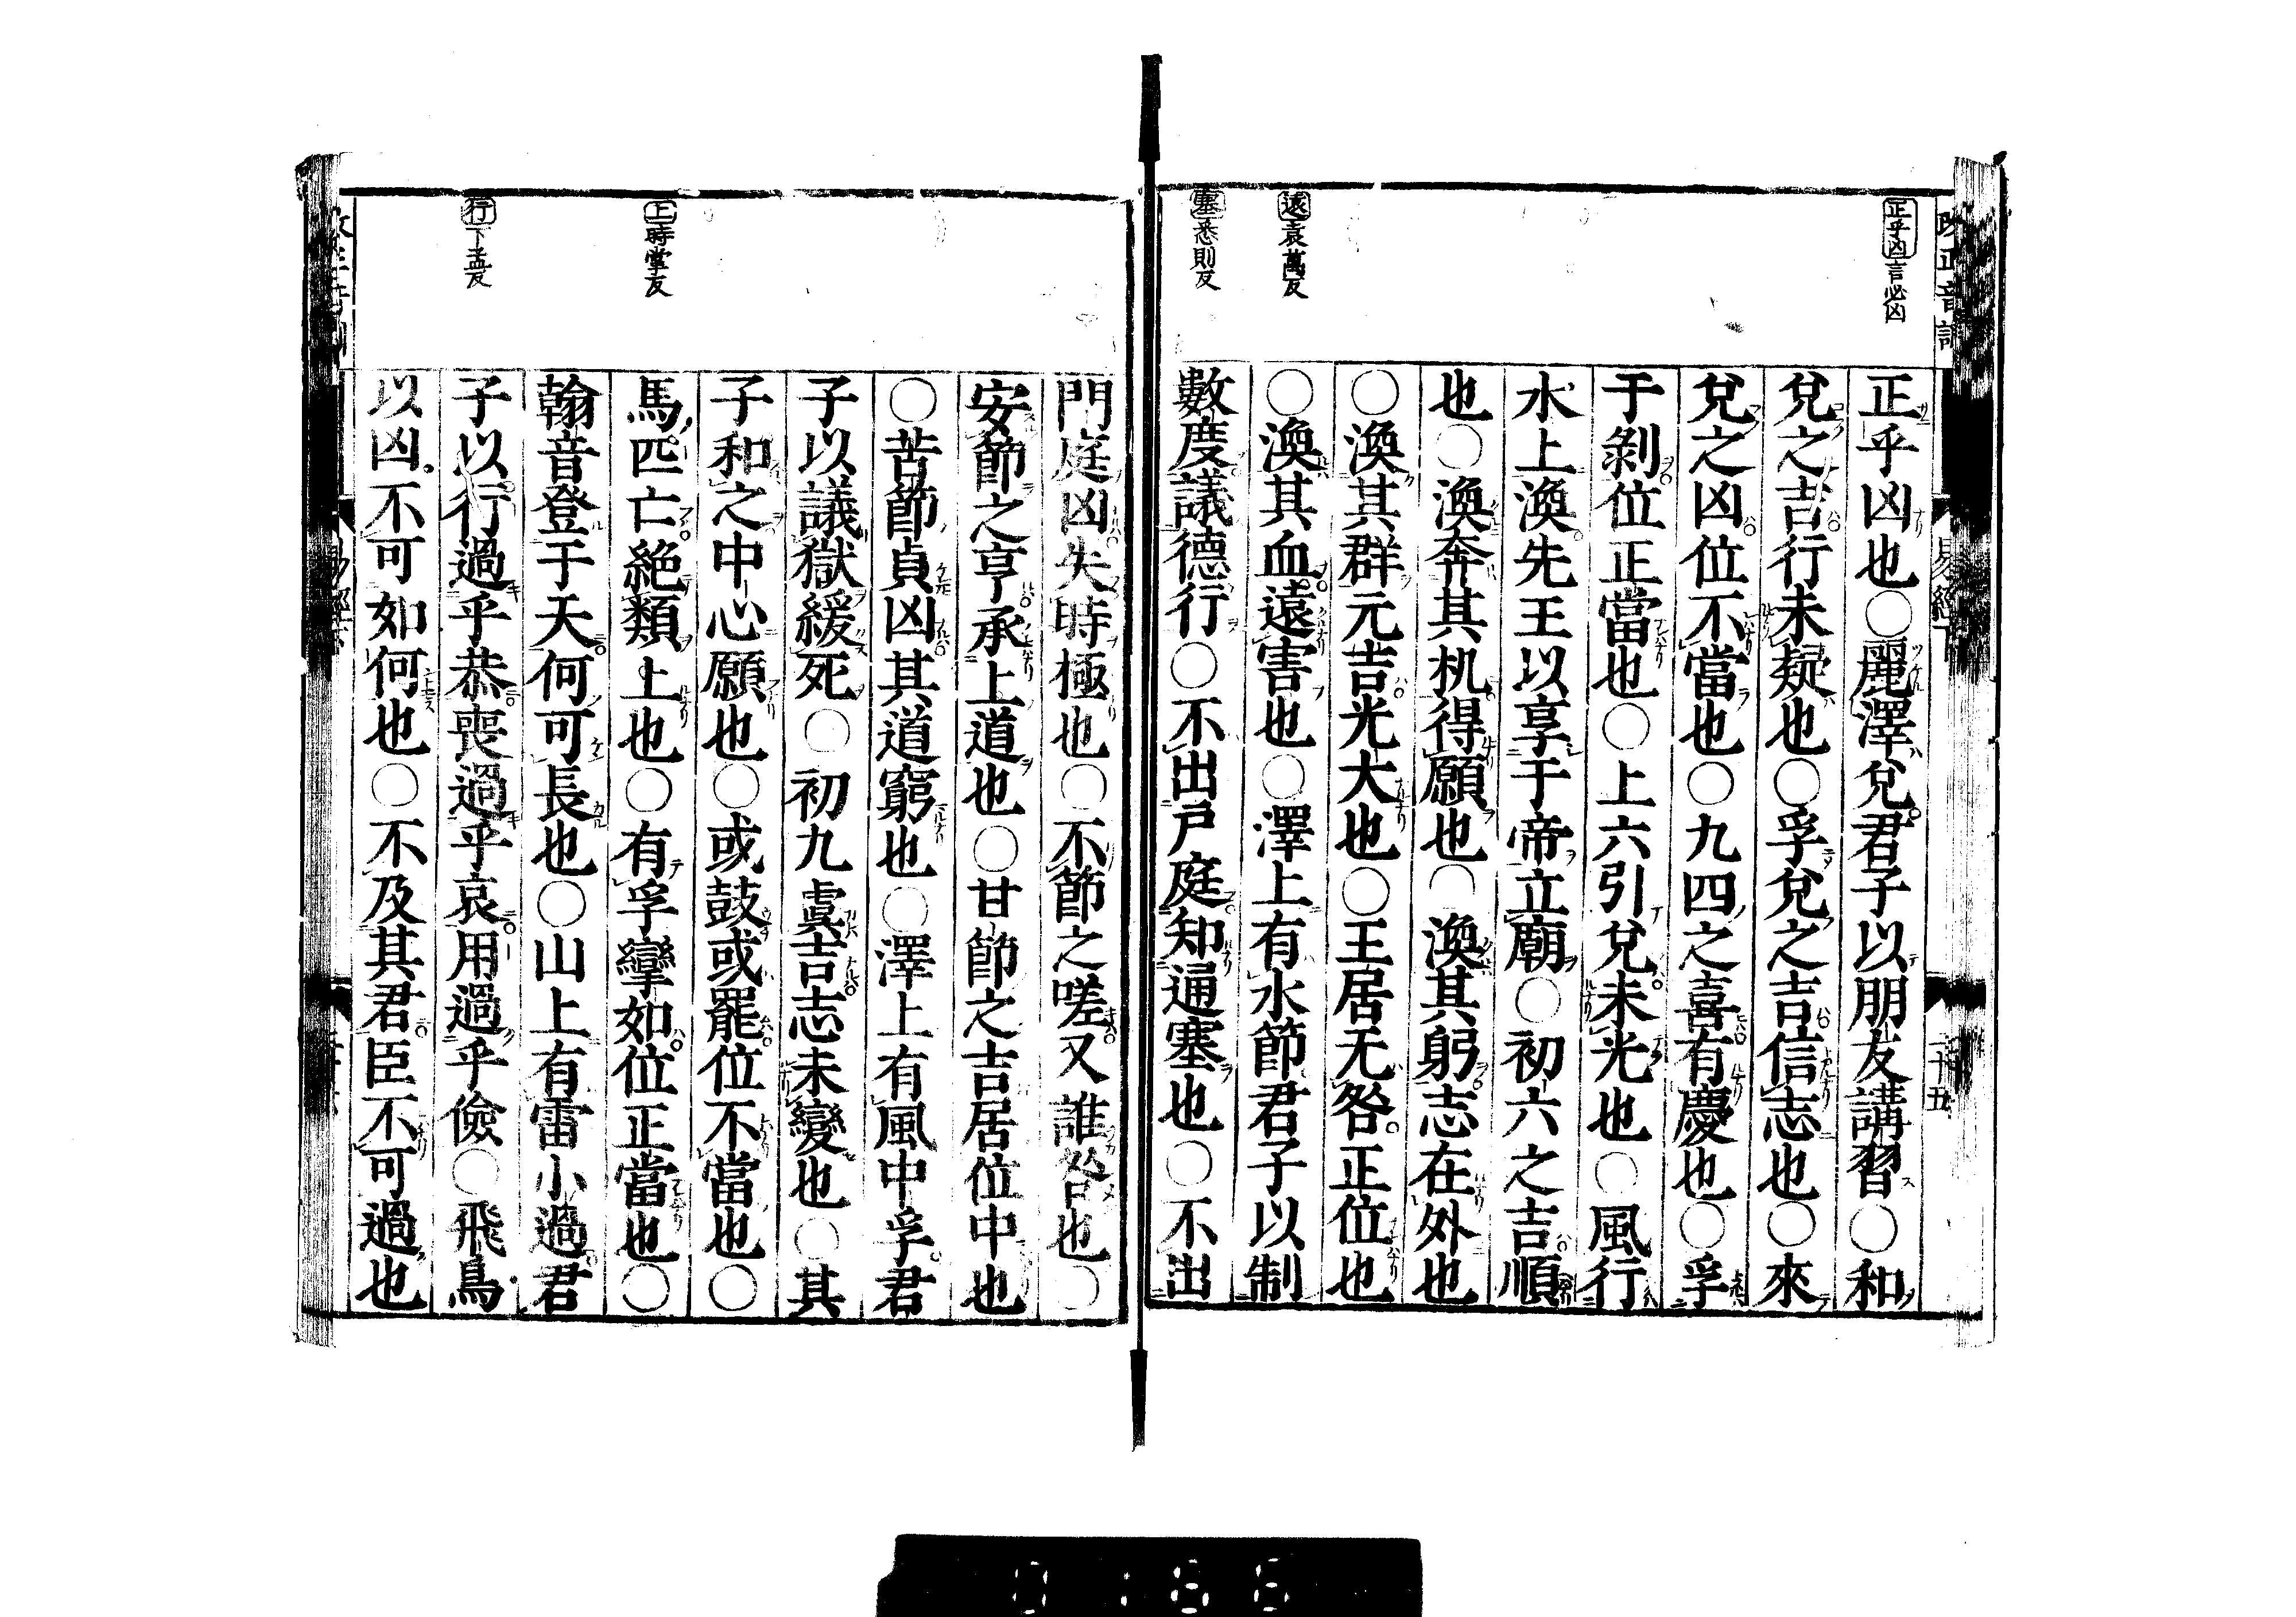 正乎凶言必凶
遠袁萬反
塞悉則反
正乎凶也○麗澤兌君子以朋友講習○和
兌之吉行未疑也○孚兌之吉信志也○來
兌之凶位不當也○九四之喜有慶也○孚
于剝位正當也○上六引兌未光也○風行
水上渙先王以享于帝立廟○初六之吉順
也○渙奔其机得願也○渙其躬志在外也
○渙其群元吉光大也○王居无咎正位也
○渙其血遠害也○澤上有水節君子以制
數度議德行○不出戶庭知通塞也○不出
易經下
二十五
上時掌反
行下孟反
門庭凶失時極也○不節之嗟又誰咎也○
安節之亨承上道也○甘節之吉居位中也
○苦節貞凶其道窮也○澤上有風中孚君
子以議獄緩死○初九虞吉志未變也○其
子和之中心願也○或鼓或罷位不當也○
馬匹亡絕類上也○有孚攣如位正當也○
翰音登于天何可長也○山上有雷小過君
子以行過乎恭喪過乎哀用過乎儉○飛鳥
以凶不可如何也○不及其君臣不可過也